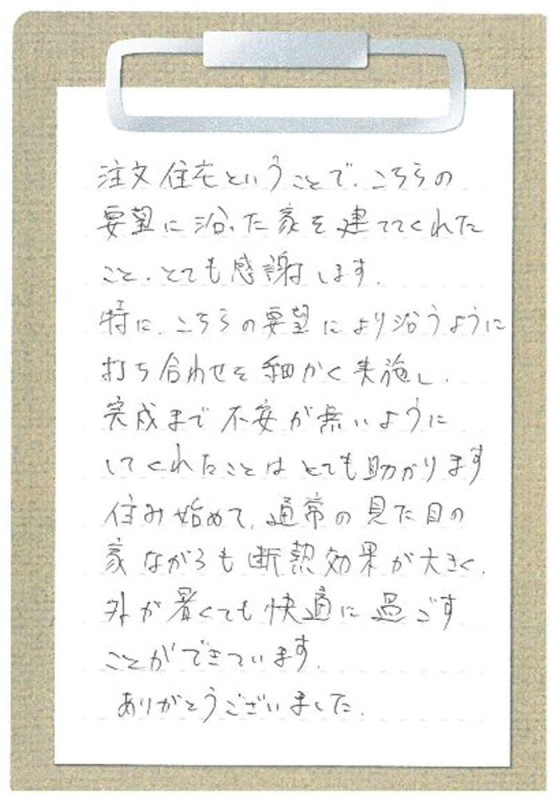 注文住宅ということで、こちらの
要望に沿った家を建ててくれた
こと、とても感謝します。
特に、こちらの要望により沿うように
打ち合わせを細かく実施し、
完成まで不安が無いように
してくれたことはとても助かります
住み始めて、通常の見た目の
家ながらも断熱効果が大きく、
外が暑くても快適に過ごす
ことができています。
ありがとうございました。